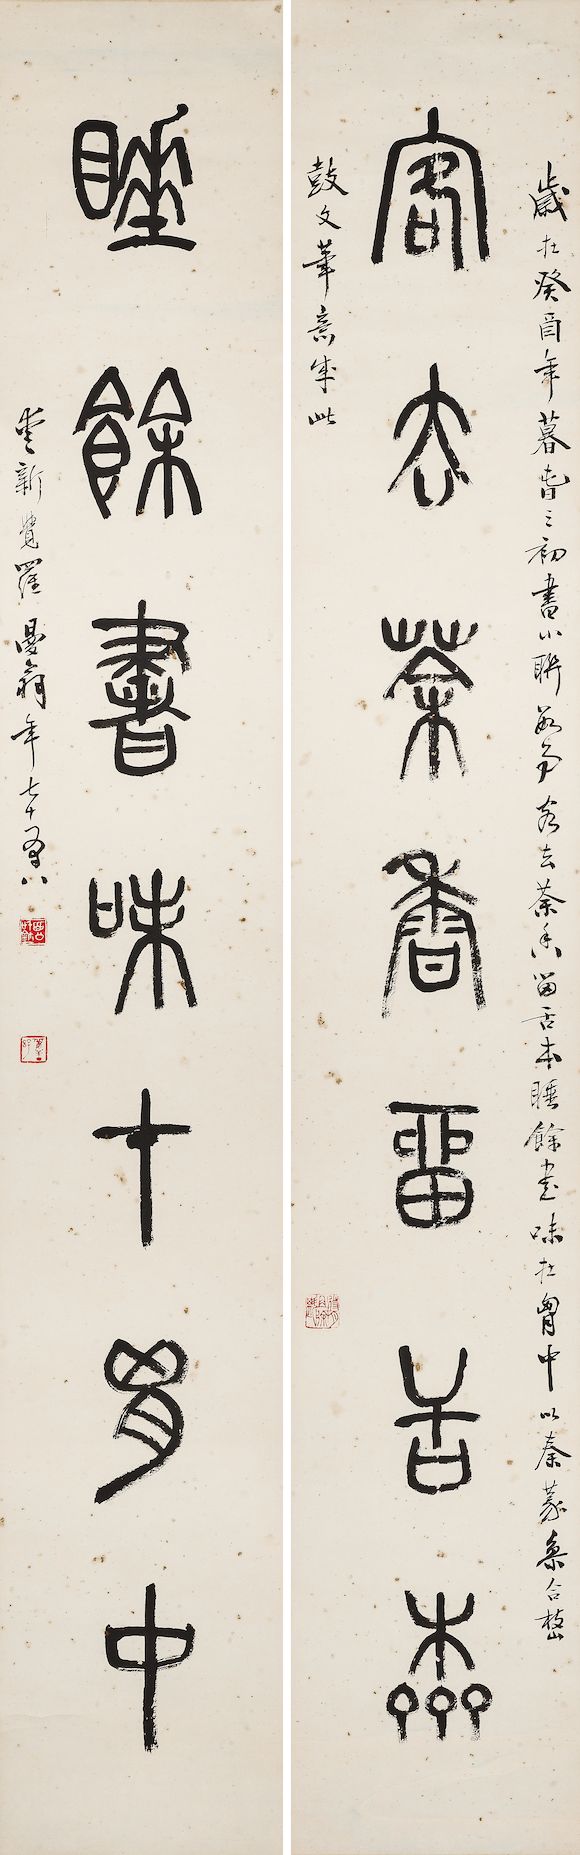 歲在癸酉年暮春之初書小聯客去茶香留舌本睡餘書味在胸中以秦篆集合
客去茶香留舌本
鼓文筆意成此
睡餘書味在胸中
愛新覺羅曼翁年七十有八